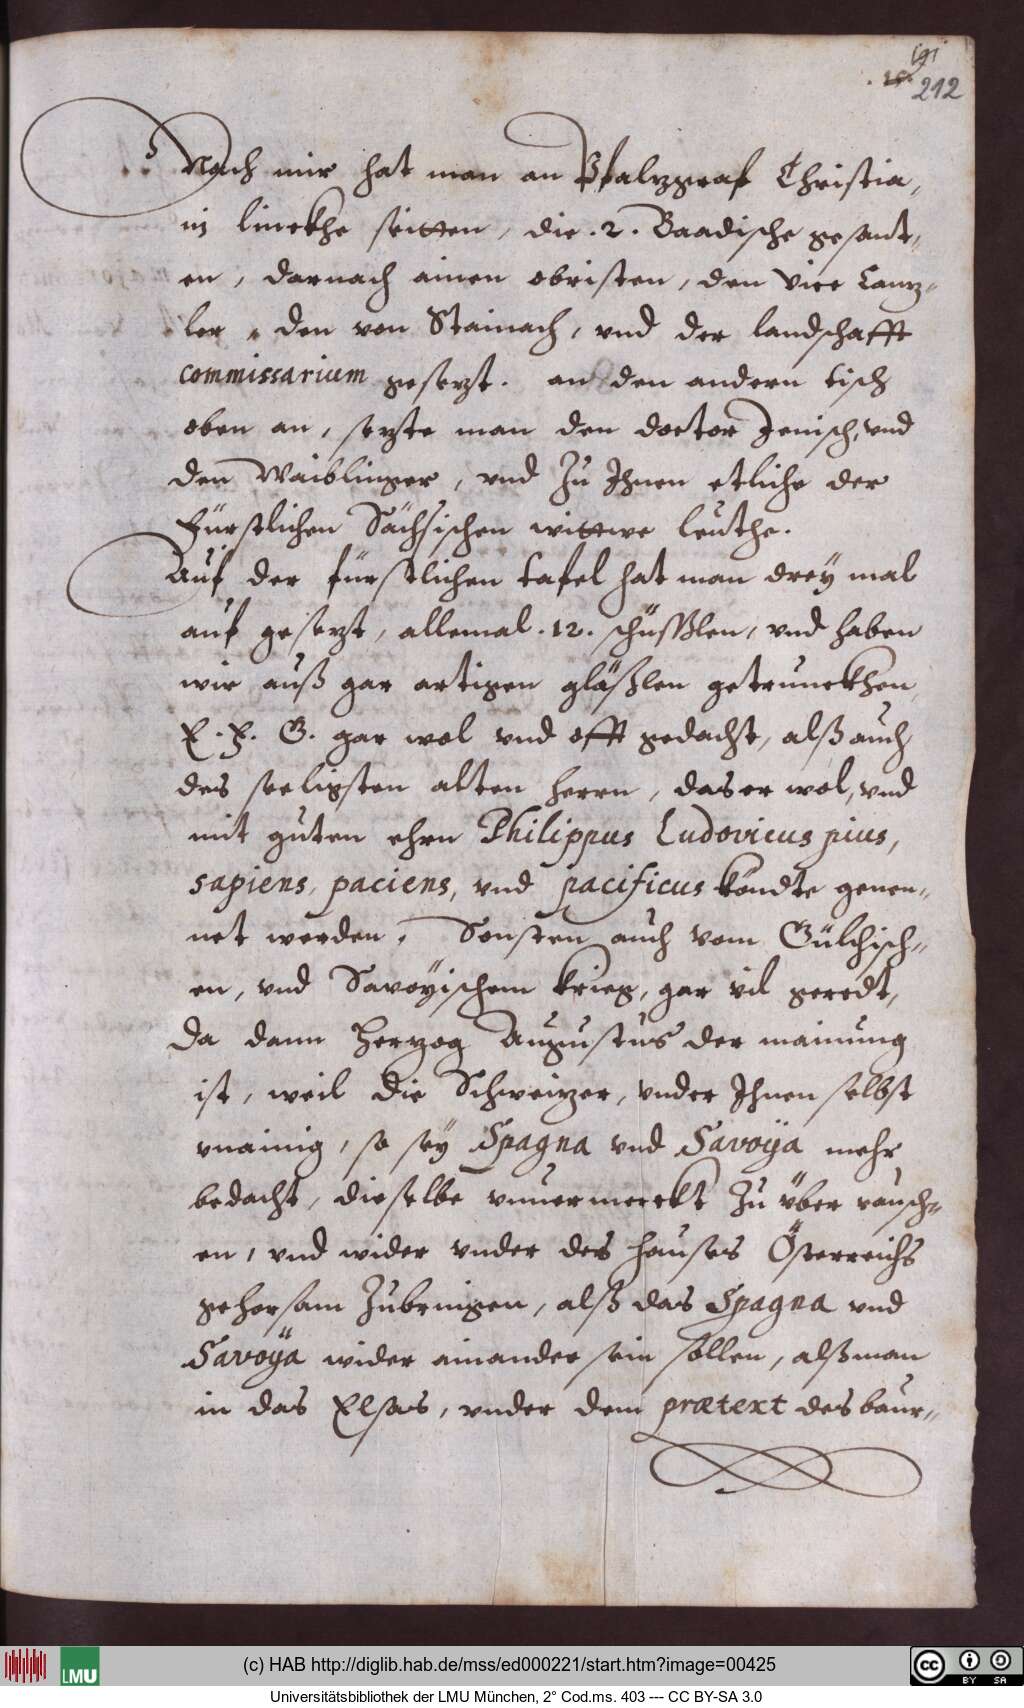 191
212
Nach mir hat man an Pfalzgraf Christia„
in linckhe seitten, die .2. Baadische gesant„
en, darnach ainen obristen, den Vice Canz„
ler, den von Stainach, vnd der landschafft
commissarium gesezt. an den andern tisch
oben an, sezte man den doctor Jenisch, vnd
den Waiblinger, vnd Zu Ihnen etliche der
Fürstlichen Sächsischen wittwe leuthe.
Auf der fürstlichen tafel hat man dreÿ mal
auf gesezt, allemal .12. schüsßlen, vnd haben
wir auß gar artigen gläßlen getrunckhen
E. F. G. gar wol vnd offt gedacht, alß auch
des seeligsten alten herrn, das er wol, vnd
mit guten ehrn Philippus Ludovicus pius,
sapiens, paciens, vnd pacificus köndte genen„
net werden. Sonsten auch vom Gülchisch„
en, vnd Savoÿischem krieg, gar vil geredt,
da dann Herzog Augustus der mainung
ist, weil die Schweizer, vnder Ihnen selbst
vnainig, so seÿ Spagna vnd Savoÿa mehr
bedacht, dieselbe vnuermerckt Zu über rausch„
en, vnd wider vnder des hauses Österreichs
gehorsam Zubringen, alß das Spagna vnd
Savoÿa wider ainander sein sollen, alß man
in das Elsas, vnder dem prætext des baur„
(c) HAB http://diglib.hab.de/mss/ed000221/start.htm?image=00425
LMU
cc BY SA
Universitätsbibliothek der LMU München, 2° Cod.ms. 403 --- CC BY-SA 3.0